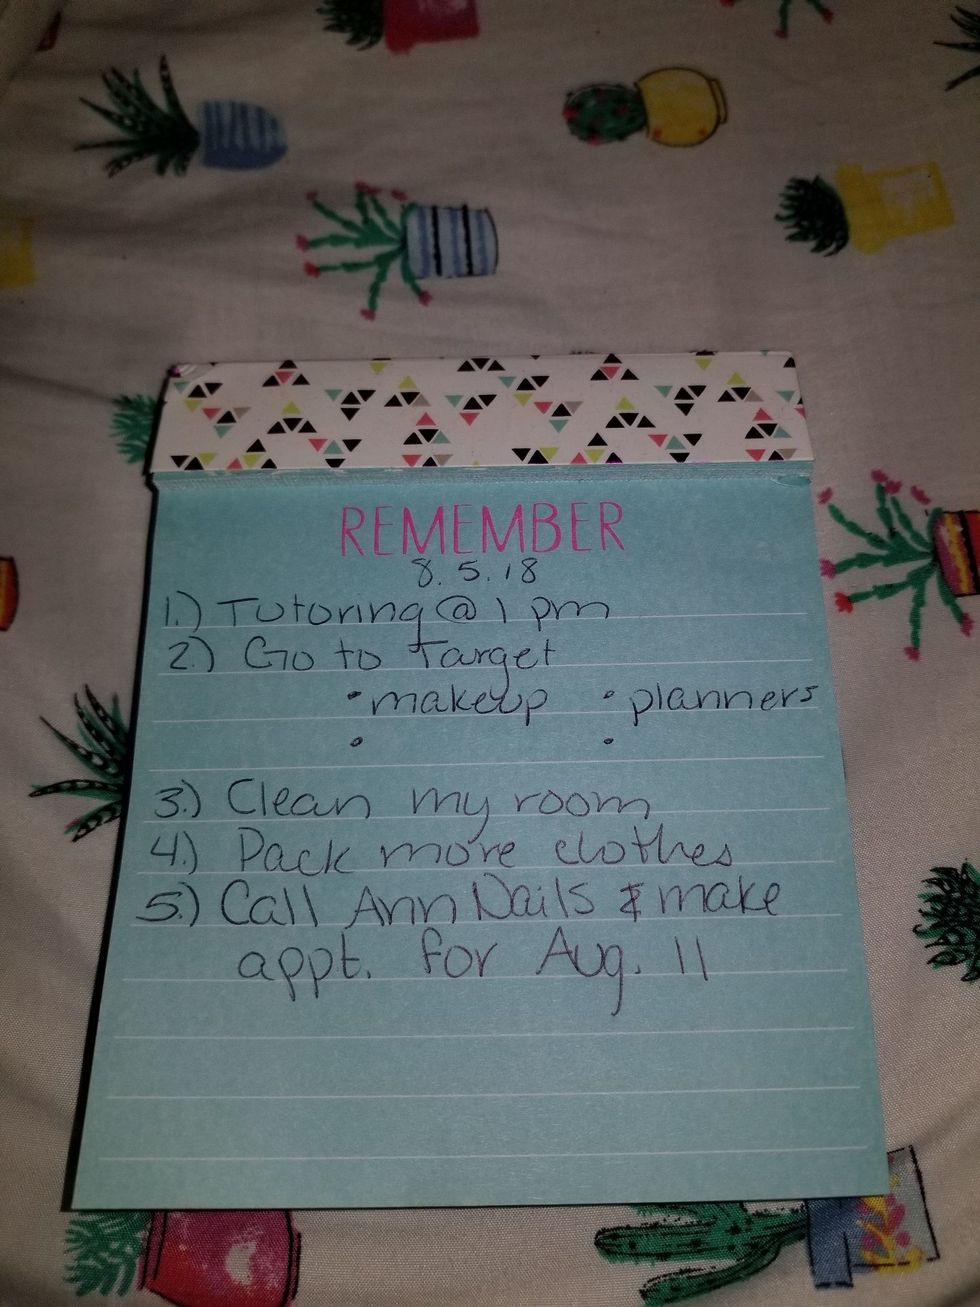 REMEMBER
8.5.18
1.) Tutoring @ 1 pm
2.) Go to Target
• makeup • planners
• •
3.) Clean my room
4.) Pack more clothes
5.) Call Ann Nails & make
appt. for Aug. 11